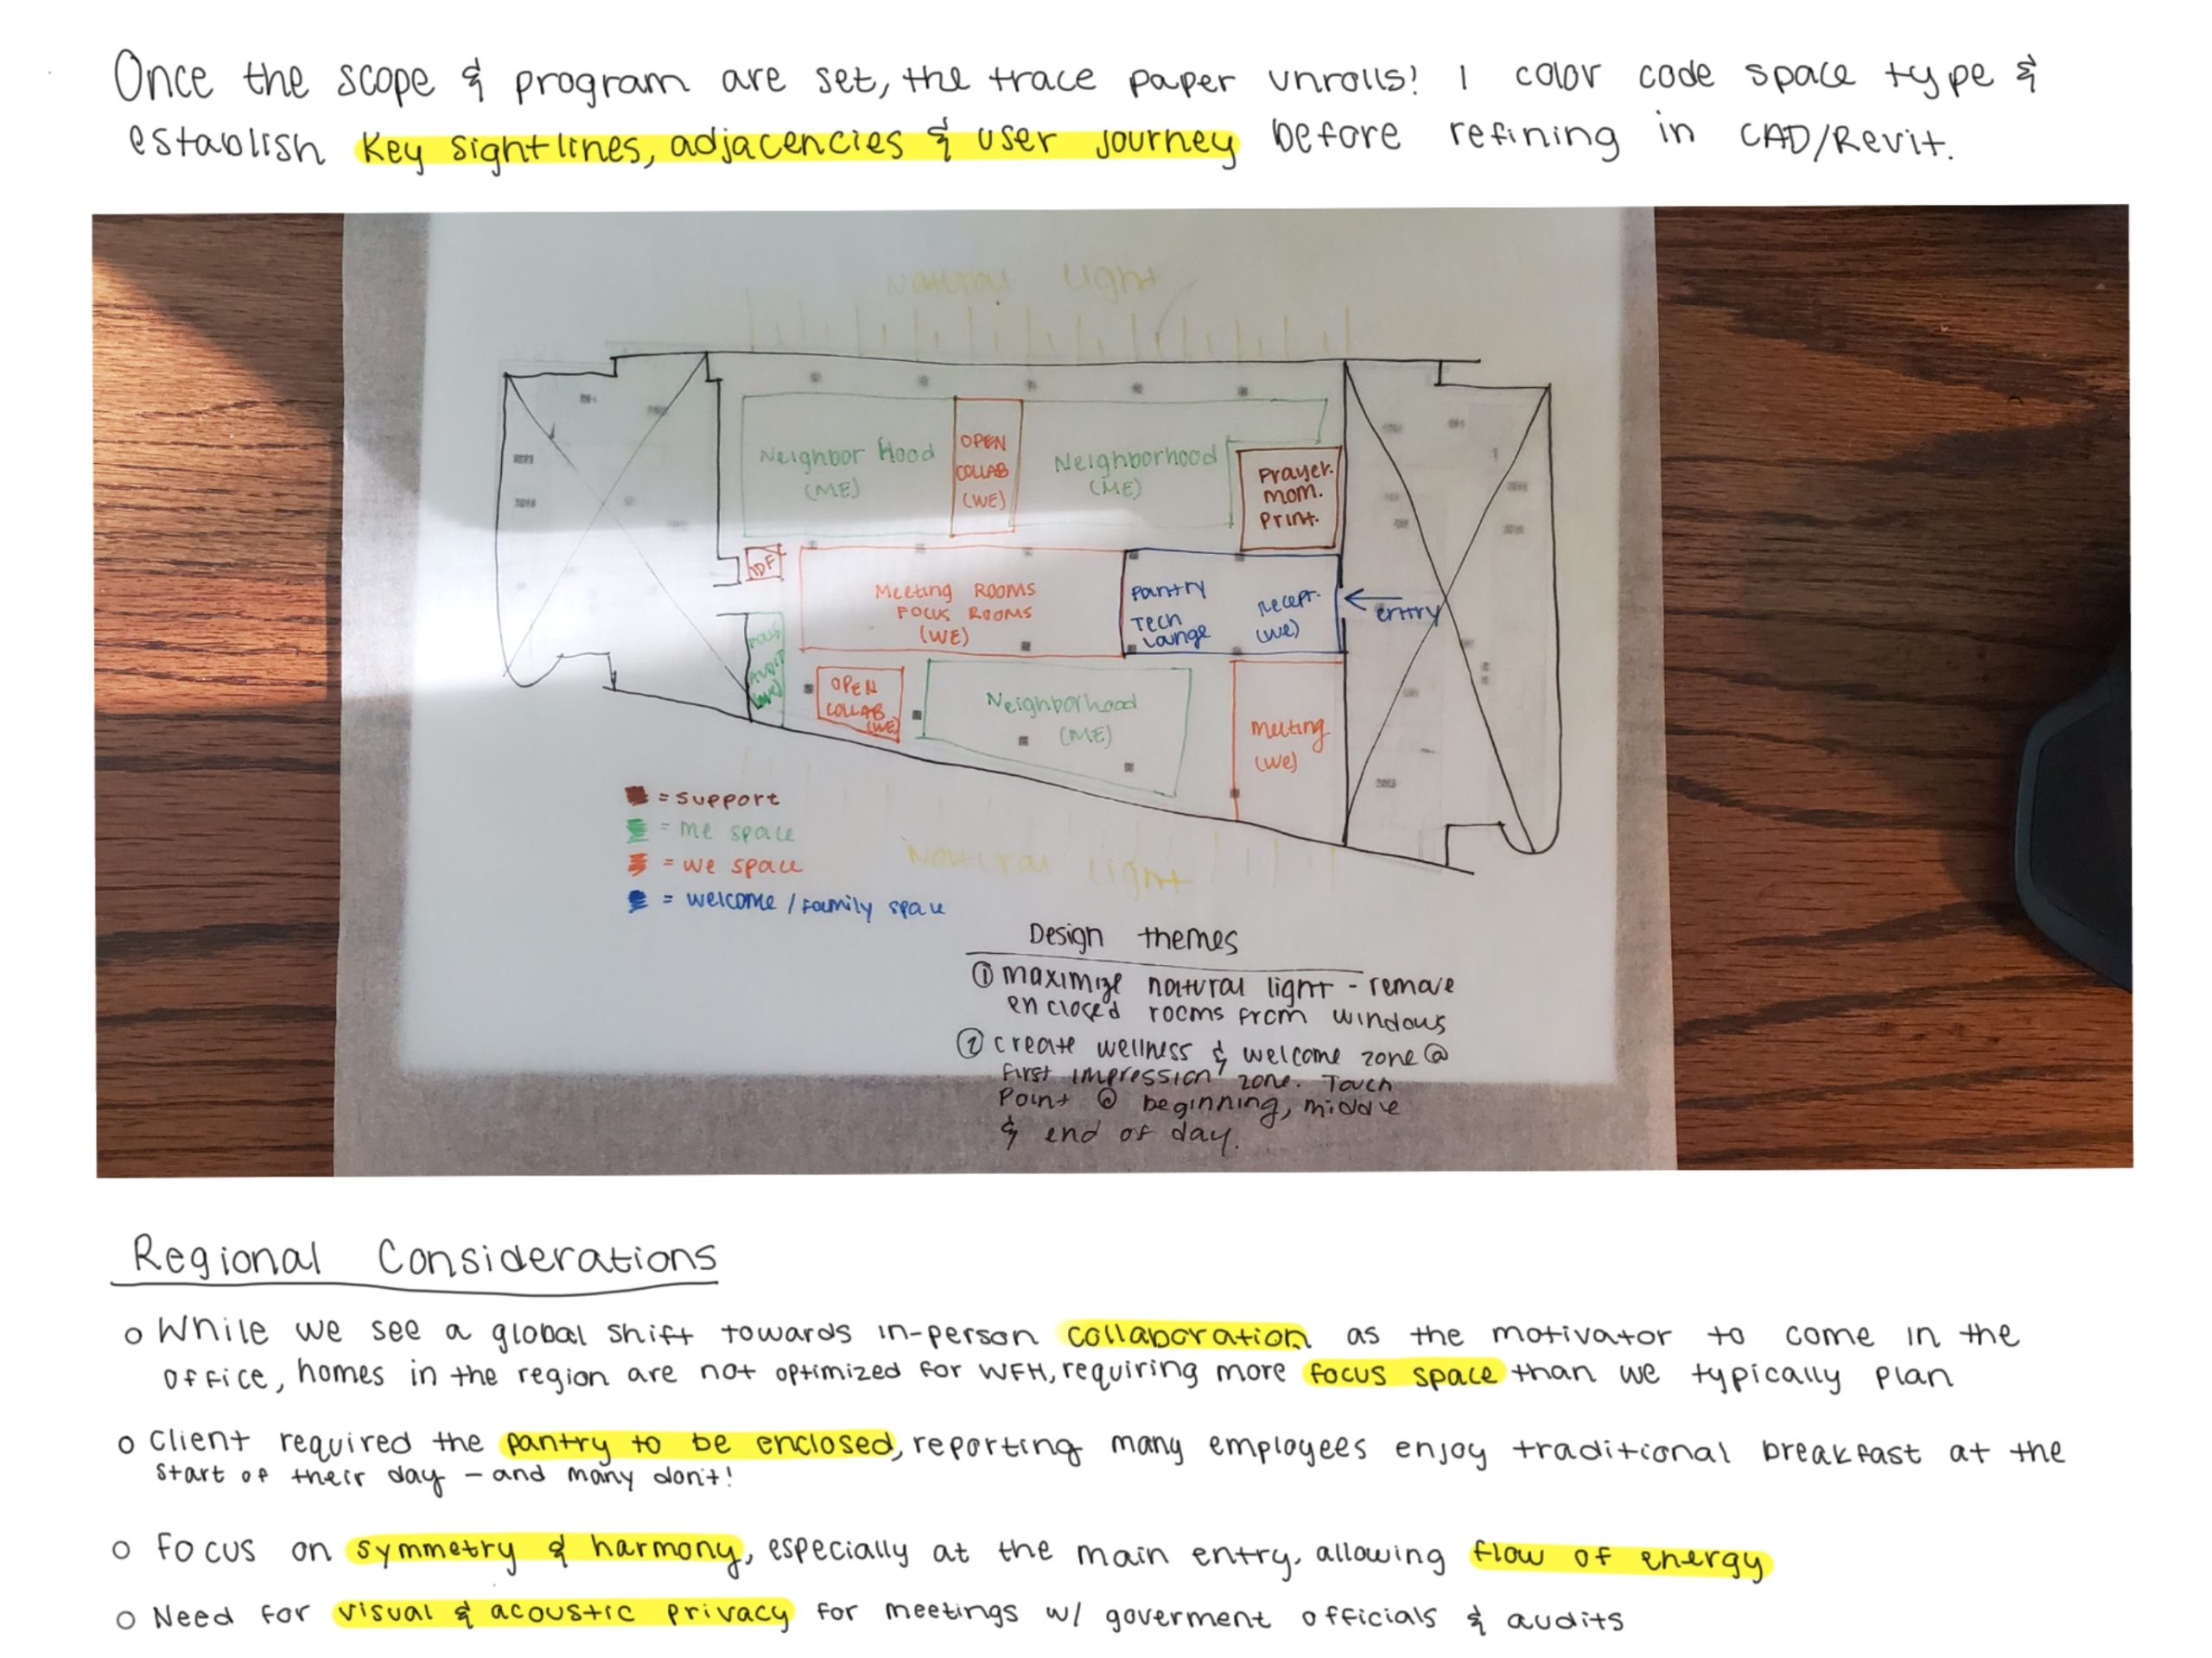 Once the scope & program are set, the trace paper unrolls! I color code space type &
establish key sightlines, adjacencies & user journey before refining in CAD/Revit.
Natural Light
Neighbor Hood
(ME)
OPEN
COLLAB
(WE)
Neighborhood
(ME)
Prayer.
Mom.
Print.
IDF
Meeting Rooms
Focus Rooms
(WE)
Pantry
Tech
Lounge
Recept.
(WE)
entry
OPEN
COLLAB
(WE)
Neighborhood
(ME)
Meeting
(WE)
= support
= me space
= we space
= welcome / family space
Natural Light
Design themes
① maximize natural light - remove
enclosed rooms from windows
② create wellness & welcome zone @
first impression zone. Touch
Point @ beginning, middle
& end of day.
Regional Considerations
o While we see a global shift towards in-person collaboration as the motivator to come in the
office, homes in the region are not optimized for WFH, requiring more focus space than we typically plan
o Client required the pantry to be enclosed, reporting many employees enjoy traditional breakfast at the
start of their day – and many don't!
o Focus on symmetry & harmony, especially at the main entry, allowing flow of energy
o Need for visual & acoustic privacy for meetings w/ goverment officials & audits